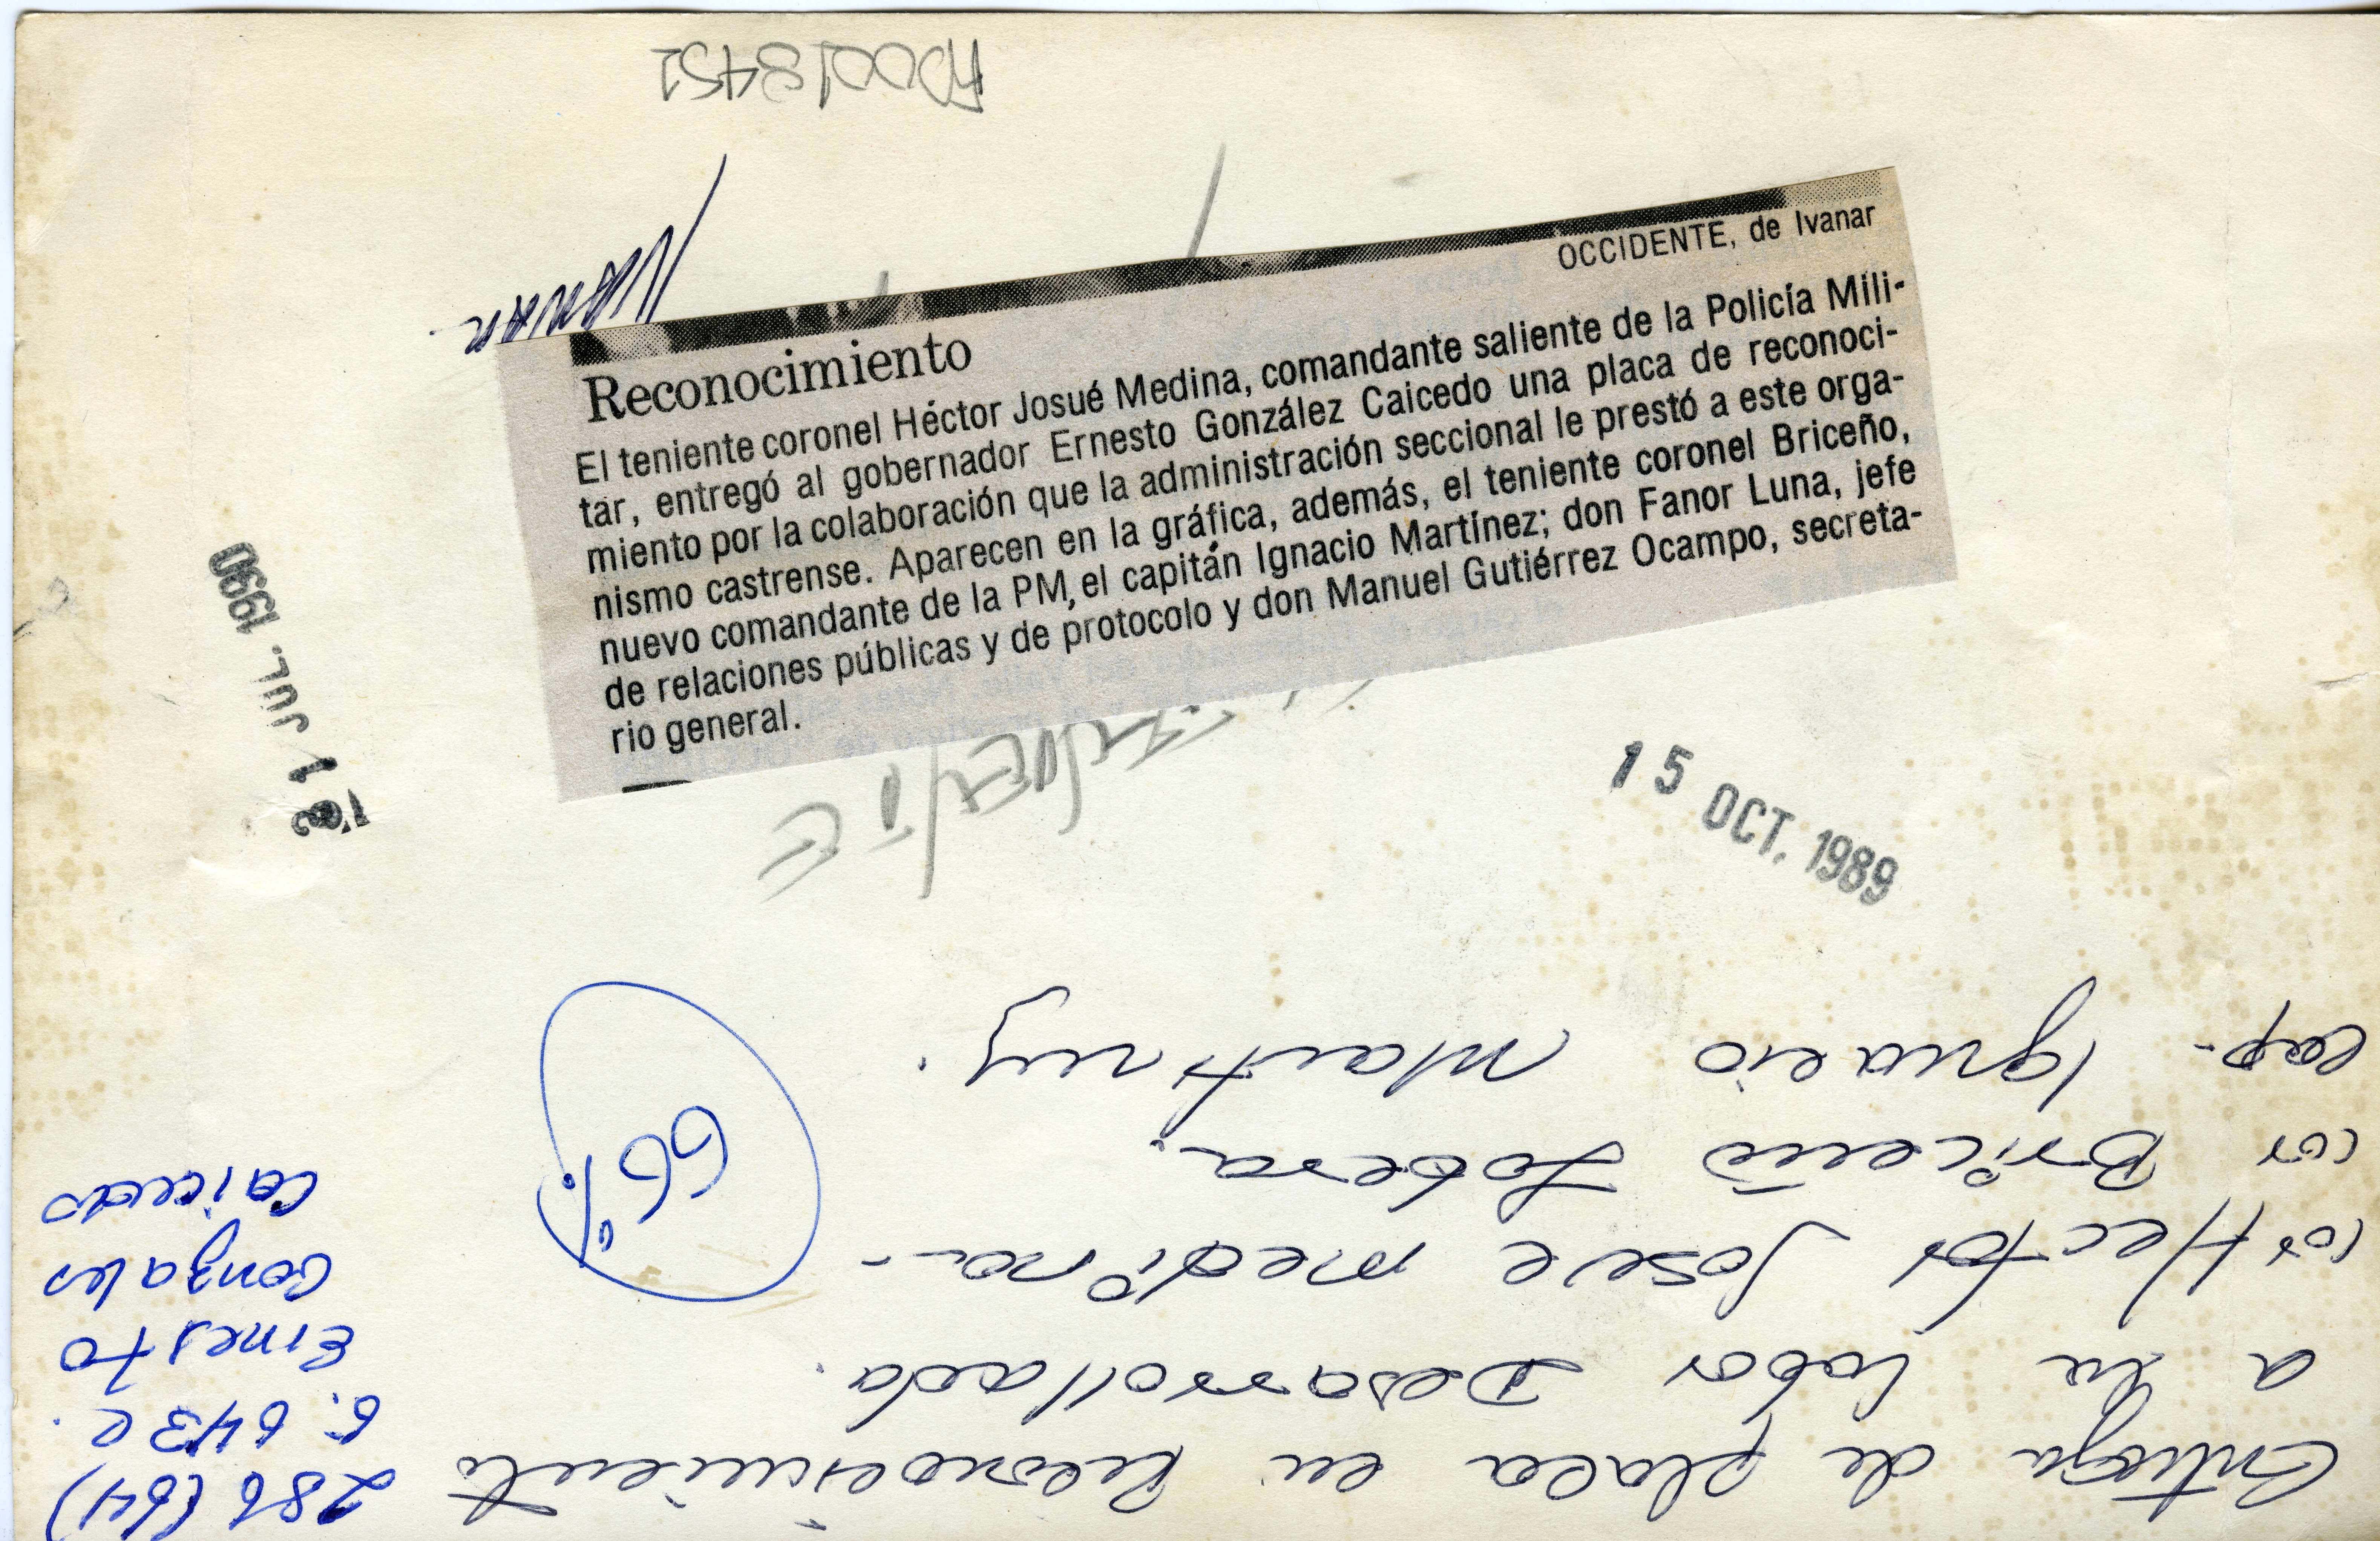 AD0018452
IVANAR
OCCIDENTE, de Ivanar
Reconocimiento
El teniente coronel Héctor Josué Medina, comandante saliente de la Policía Mili-
tar, entregó al gobernador Ernesto González Caicedo una placa de reconoci-
miento por la colaboración que la administración seccional le prestó a este orga-
nismo castrense. Aparecen en la gráfica, además, el teniente coronel Briceño,
nuevo comandante de la PM, el capitán Ignacio Martínez; don Fanor Luna, jefe
de relaciones públicas y de protocolo y don Manuel Gutiérrez Ocampo, secreta-
rio general.
JUL. 1990
15 OCT. 1989
Entrega de placa en Reconocimiento
a su labor Desarrollada.
cor Hector Josue medina.-
cor Briceño
Cap. Ignacio Martinez.
66%
286 (64)
6.643 C.
Ernesto
Gonzales
Caicedo